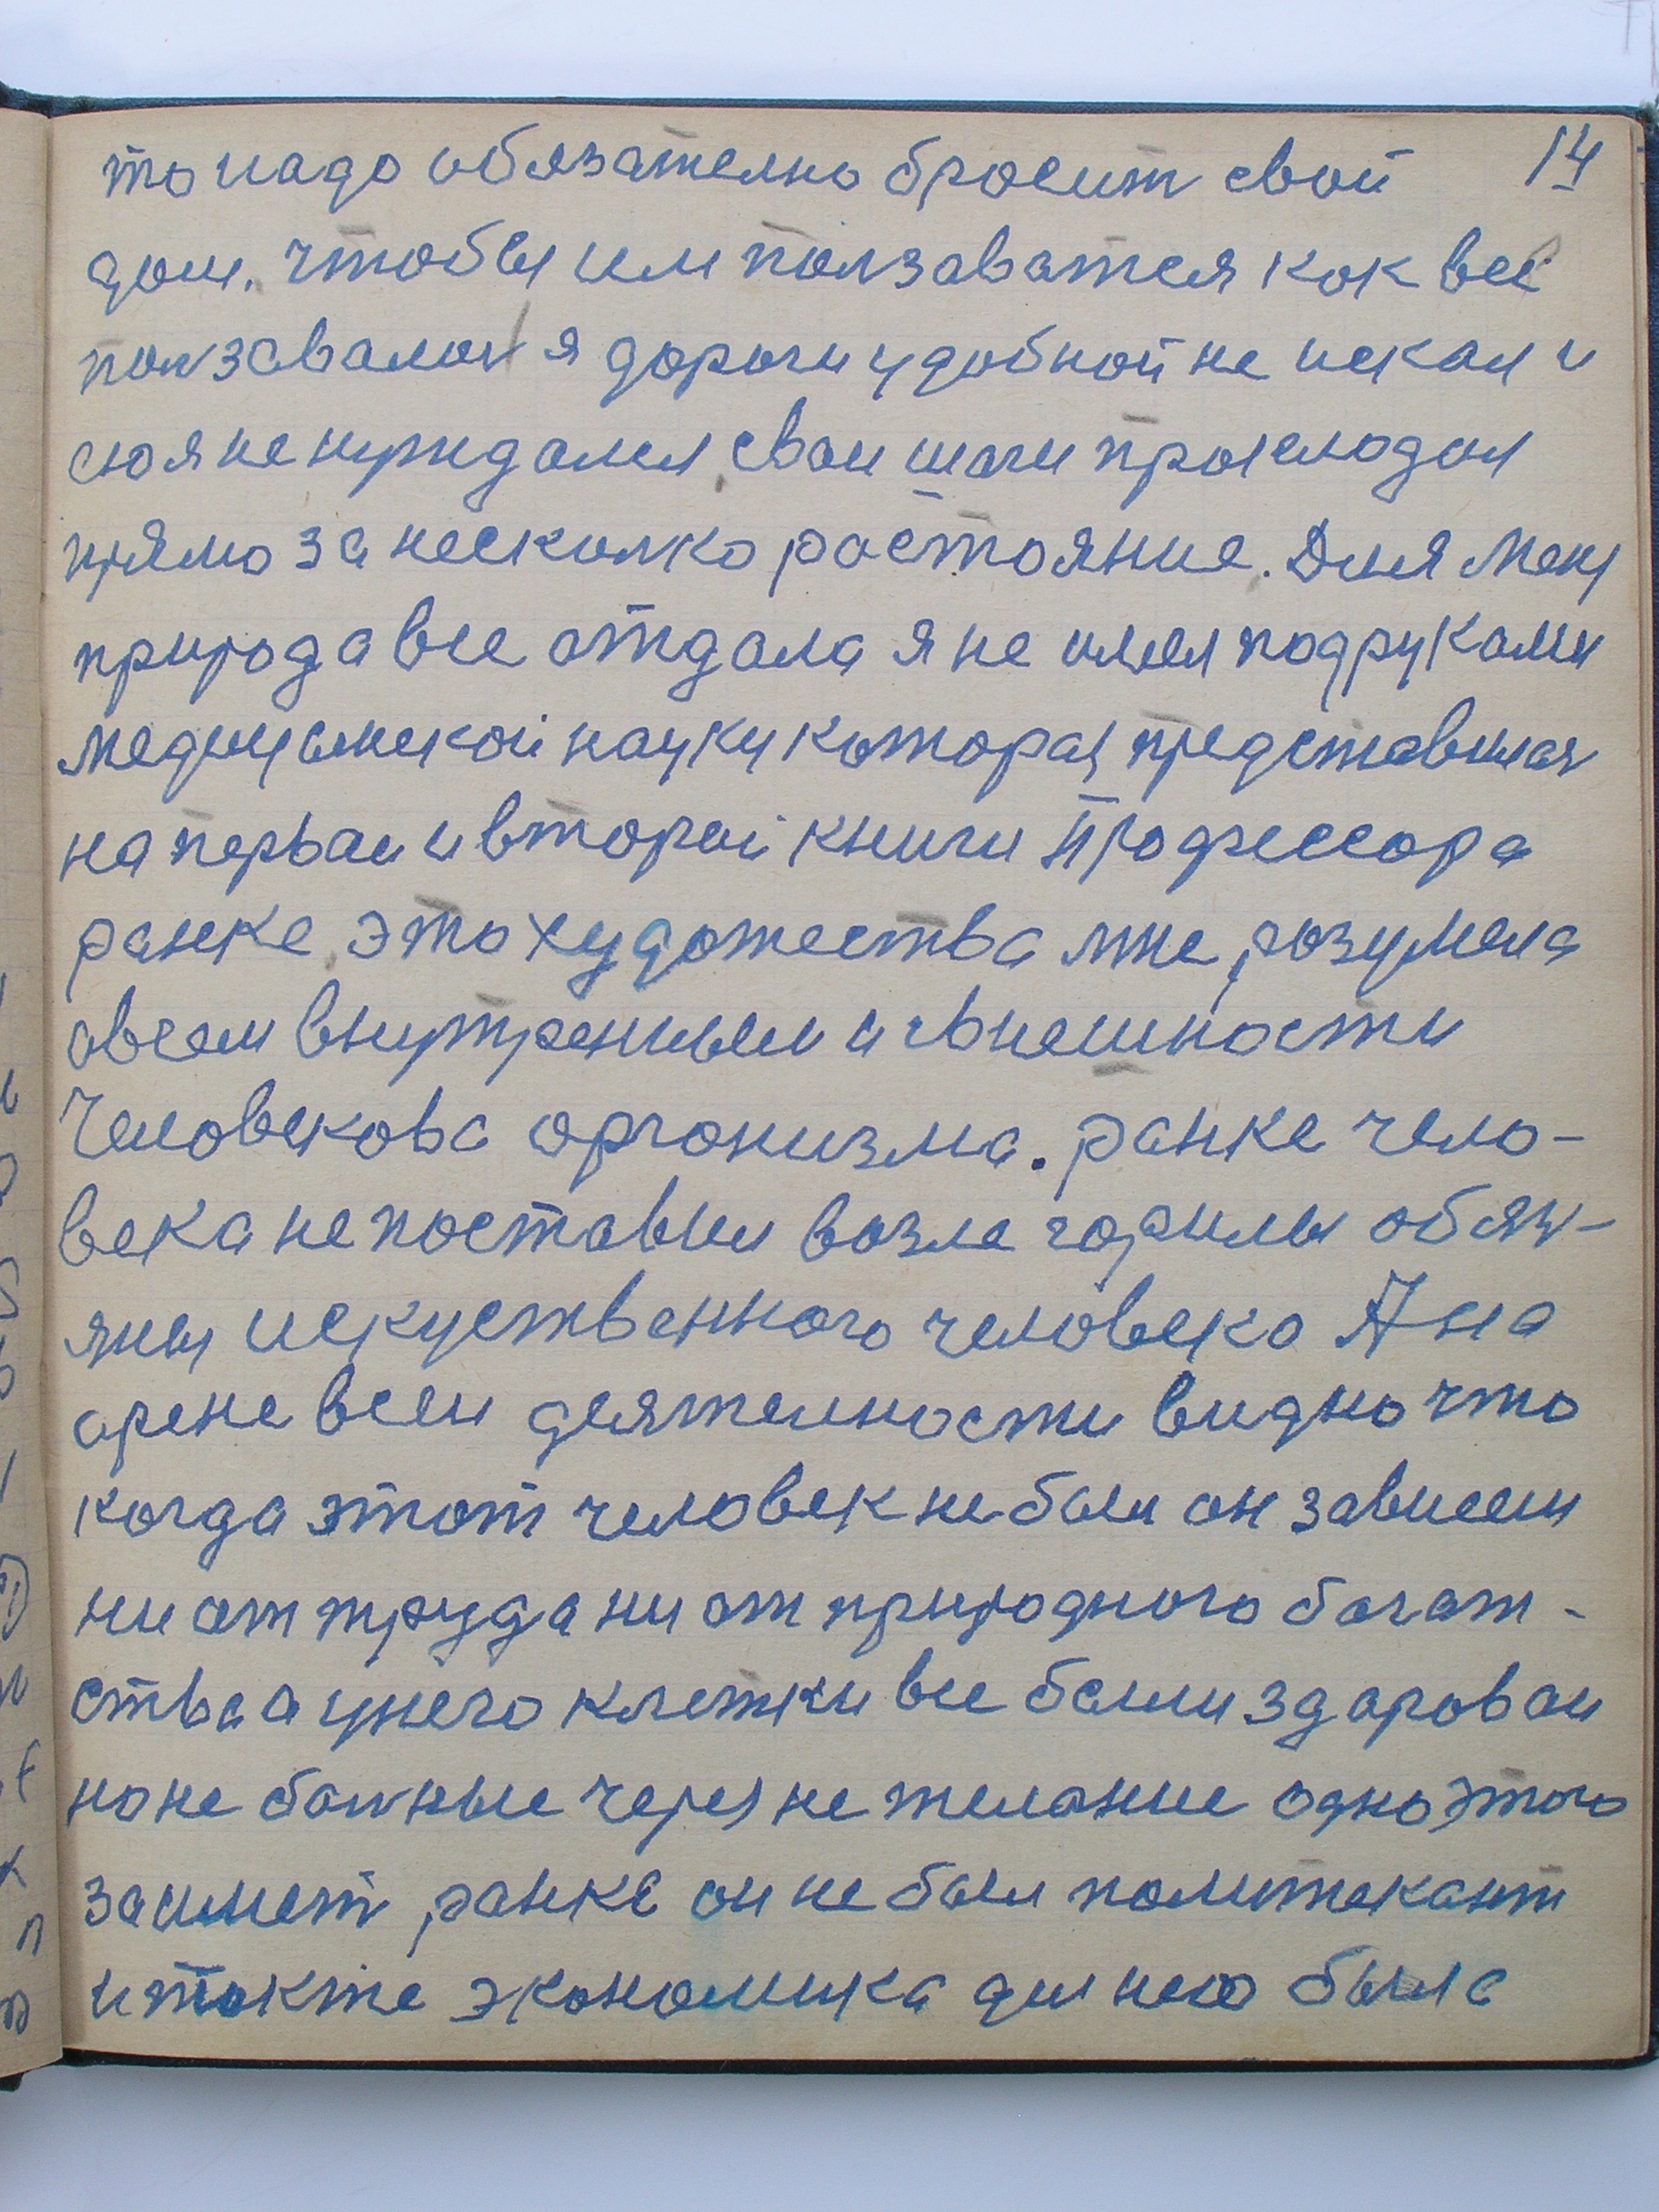 то надо обязателно бросит свой 14
дом, чтобы им ползаватся как все
ползавалис я дороги удобной не искал и
сю я не нуждался, свои шаги прокладал
прямо за несколко растояние. Для меня
природа все отдала я не имел под руками
медицынской науки которая представилас
на первай и второй книги Профессора
ранке, это художества мне розумела
овсем внутреннием и внешности
Человекова организма. ранке чело-
века не поставил возле горилы обяз-
яны искуственного человека А на
арене всеи деятелности видно что
когда этот человек не был он зависем
ни от труда ни от природного богат-
ства а у него клетки все были здаровои
но не болные через не желание одно этого
займет ранке он не был политекант
и также экономика для него была